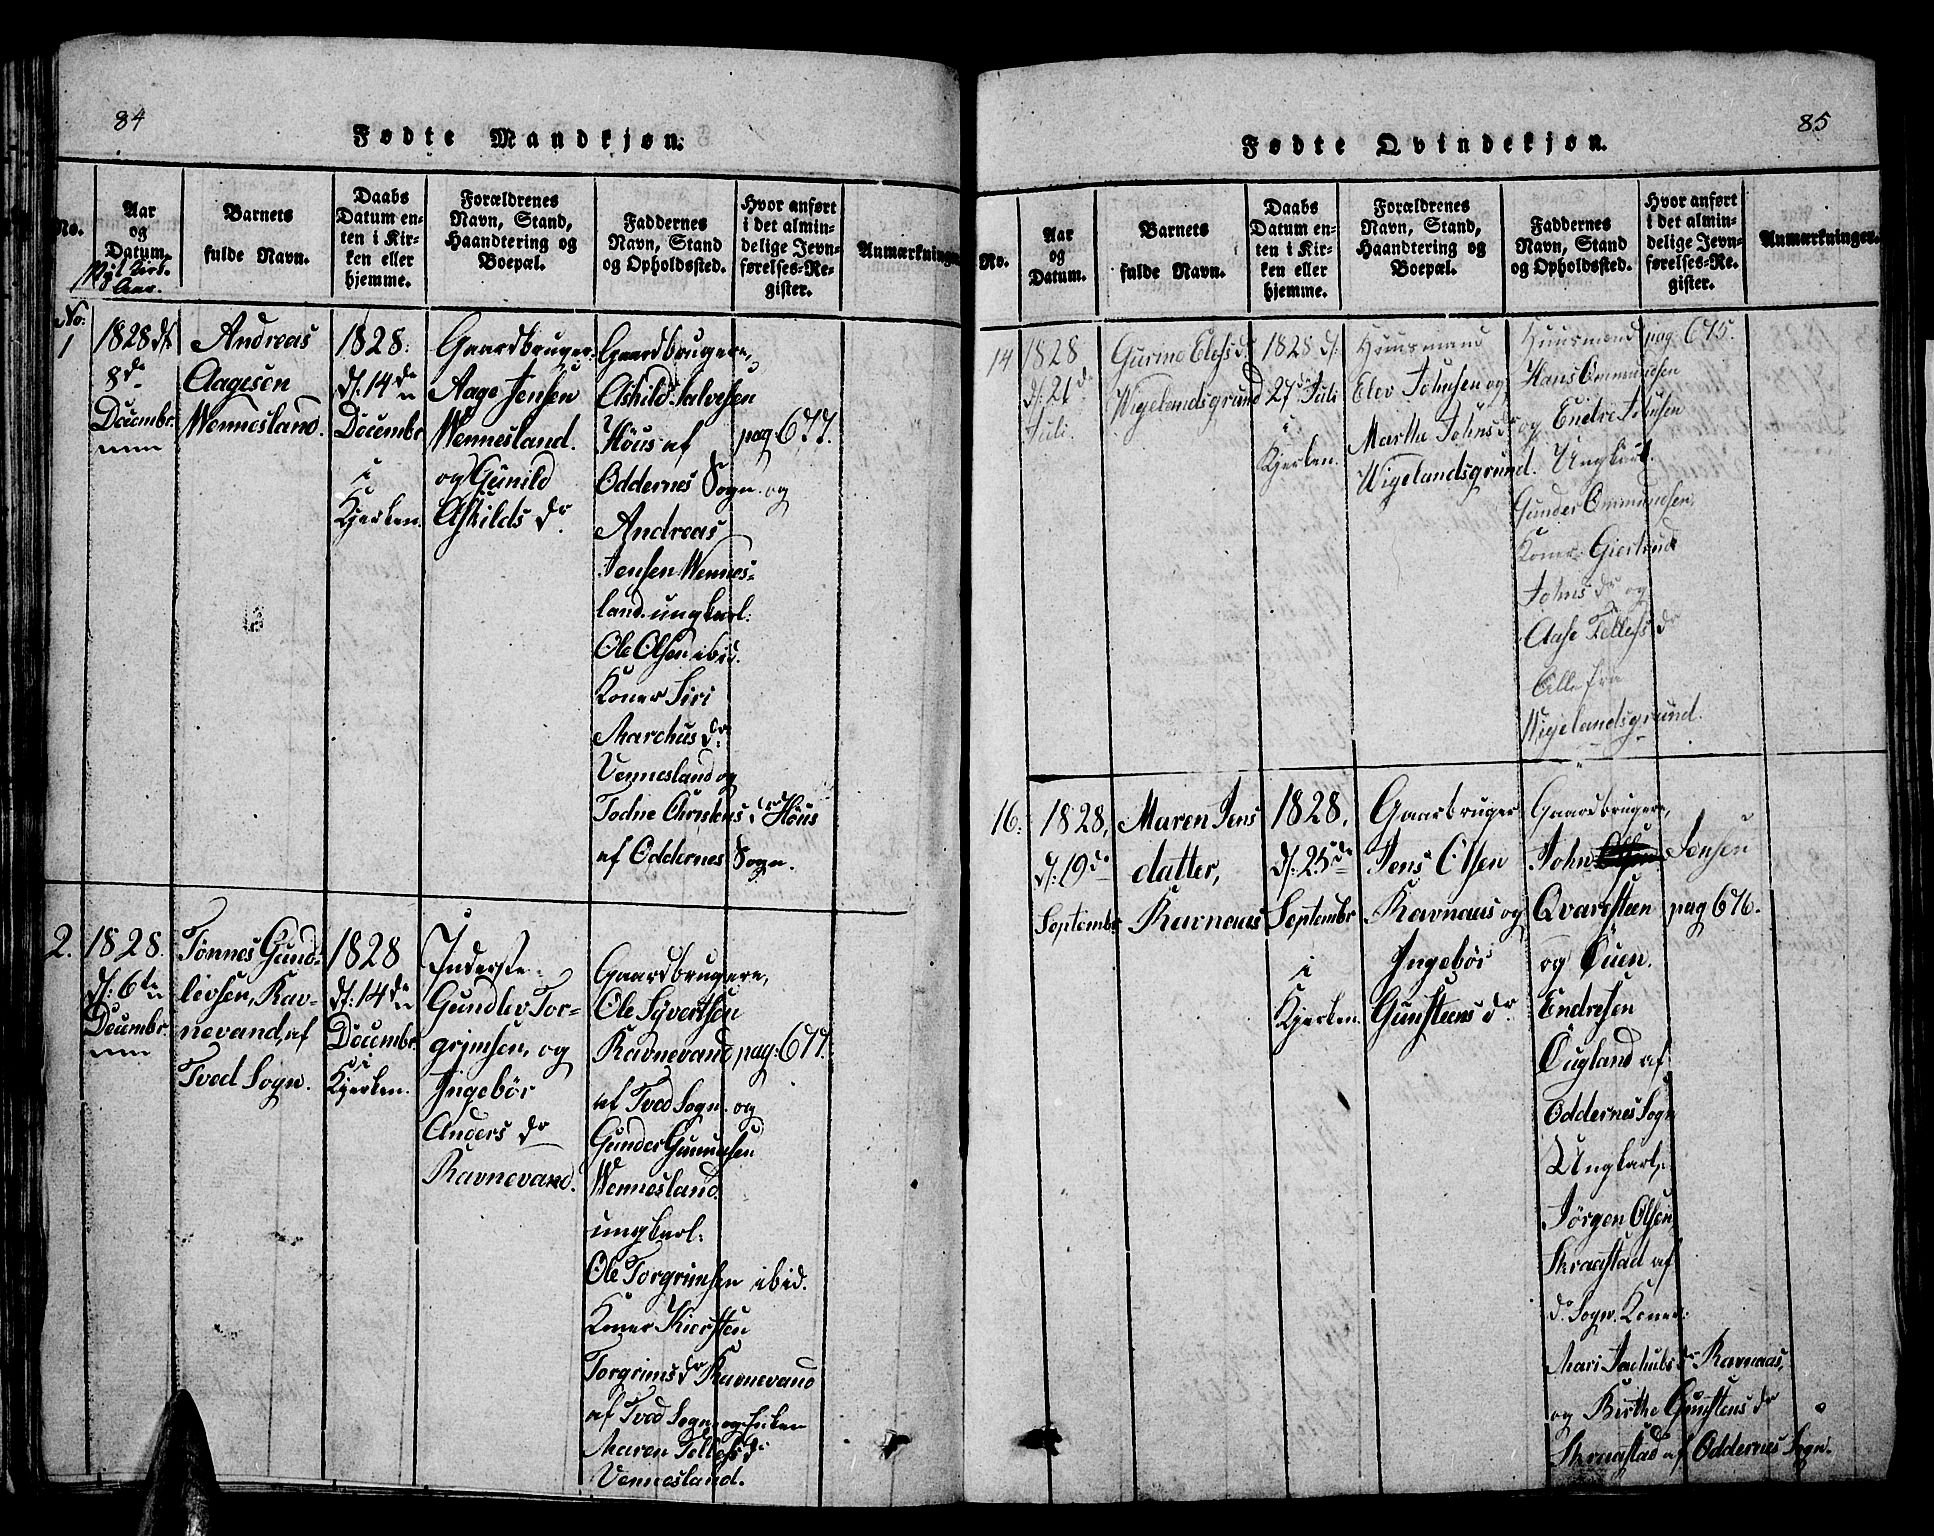 84
Fødte Mandkjøn.
No.
Aar
og
Datum.
Barnets
fulde Navn.
Daabs
Datum en-
ten i Kir-
ken eller
hjemme.
Forældrenes
Navn, Stand,
Haandtering og
Boepæl.
Faddernes
Navn, Stand
og Opholdssted.
Hvor anført
i det almin-
delige Jevn-
førelses-Re-
gister.
Anmærkninger.
No:
1
1828 d:
8de
Decembr.
Andreas
Aagesen
Wennesland.
1828.
d: 14de
Decembr
i
Kjerken.
Gaardbruger
Aage Jensen
Wennesland.
og Gunild
Askilds dr.
Gaardbrugere,
Askild Salvesen
Höus af
Oddernes Sogn. og
Andreas
Jensen Wennes-
land. ungkarl:
Ole Olsen ibid.
Koner Siri
Marchus dr.
Vennesland og
Todne Christens dr Höus
af Oddernes Sogn.
pag. 677.
2.
1828.
d: 6te
Decembr.
Tønnes Gund-
levsen, Rav-
nevand, af
Tved Sogn.
1828
d: 14de
Decembr.
i
Kjerken.
Inderste
Gundlev Tor-
grimsen, og
Ingebör
Anders dr
Ravnevand.
Gaardbrugere,
Ole Syvertsen
Ravnevand
af Tved Sogn. og
Gunder Gunnufsen
Wennesland.
ungkarl:
Ole Torgrimsen ibid.
Koner Kiersten
Torgrims dr Ravnevand
af Tved Sogn og
Maren Tellefs dr
Vennesland.
pag: 677.
85
Fødte Qvindekjøn.
No.
Aar
og
Datum.
Barnets
fulde Navn.
Daabs
Datum en-
ten i Kir-
ken eller
hjemme.
Forældrenes
Navn, Stand,
Haandtering og
Boepæl.
Faddernes
Navn, Stand
og Opholdssted.
Hvor anført
i det almin-
delige Jevn-
førelses-Re-
gister.
Anmærkninger.
14
1828
d: 21de
Juli.
Gurine Elefs dr
Wigelandsgrund
1828 d:
27de Juli
i
Kjerken.
Huusmand
Elev Johnsen og
Martha Johns dr
Wigelandsgrund.
Huusmænd
Hans Ommundsen
og Endre Johnsen
Ungkarl.
Gunder Ommundsen.
Koner Giertrud
Johns dr og
Aase Tellefs dr
Alle fra
Wigelandsgrund.
pag: 675.
16.
1828.
d: 19de
Septembr
Maren Jens
datter,
Ravnaas
1828.
d: 25de
Septembr
i
Kjerken.
Gaarbruger
Jens Olsen
Ravnaas og
Ingebör
Gunsteens dr
Gaardbrugere,
John Jensen
Qvarsteen
og Ouen
Endresen
Ougland af
Oddernes Sogn
Ungkarl,
Jörgen Olsen
Skraastad af
do Sogn. Koner:
Mari Jachobs dr Ravnaas,
og Birthe Gunsteens dr
Skraastad af Oddernes Sogn.
pag 676.